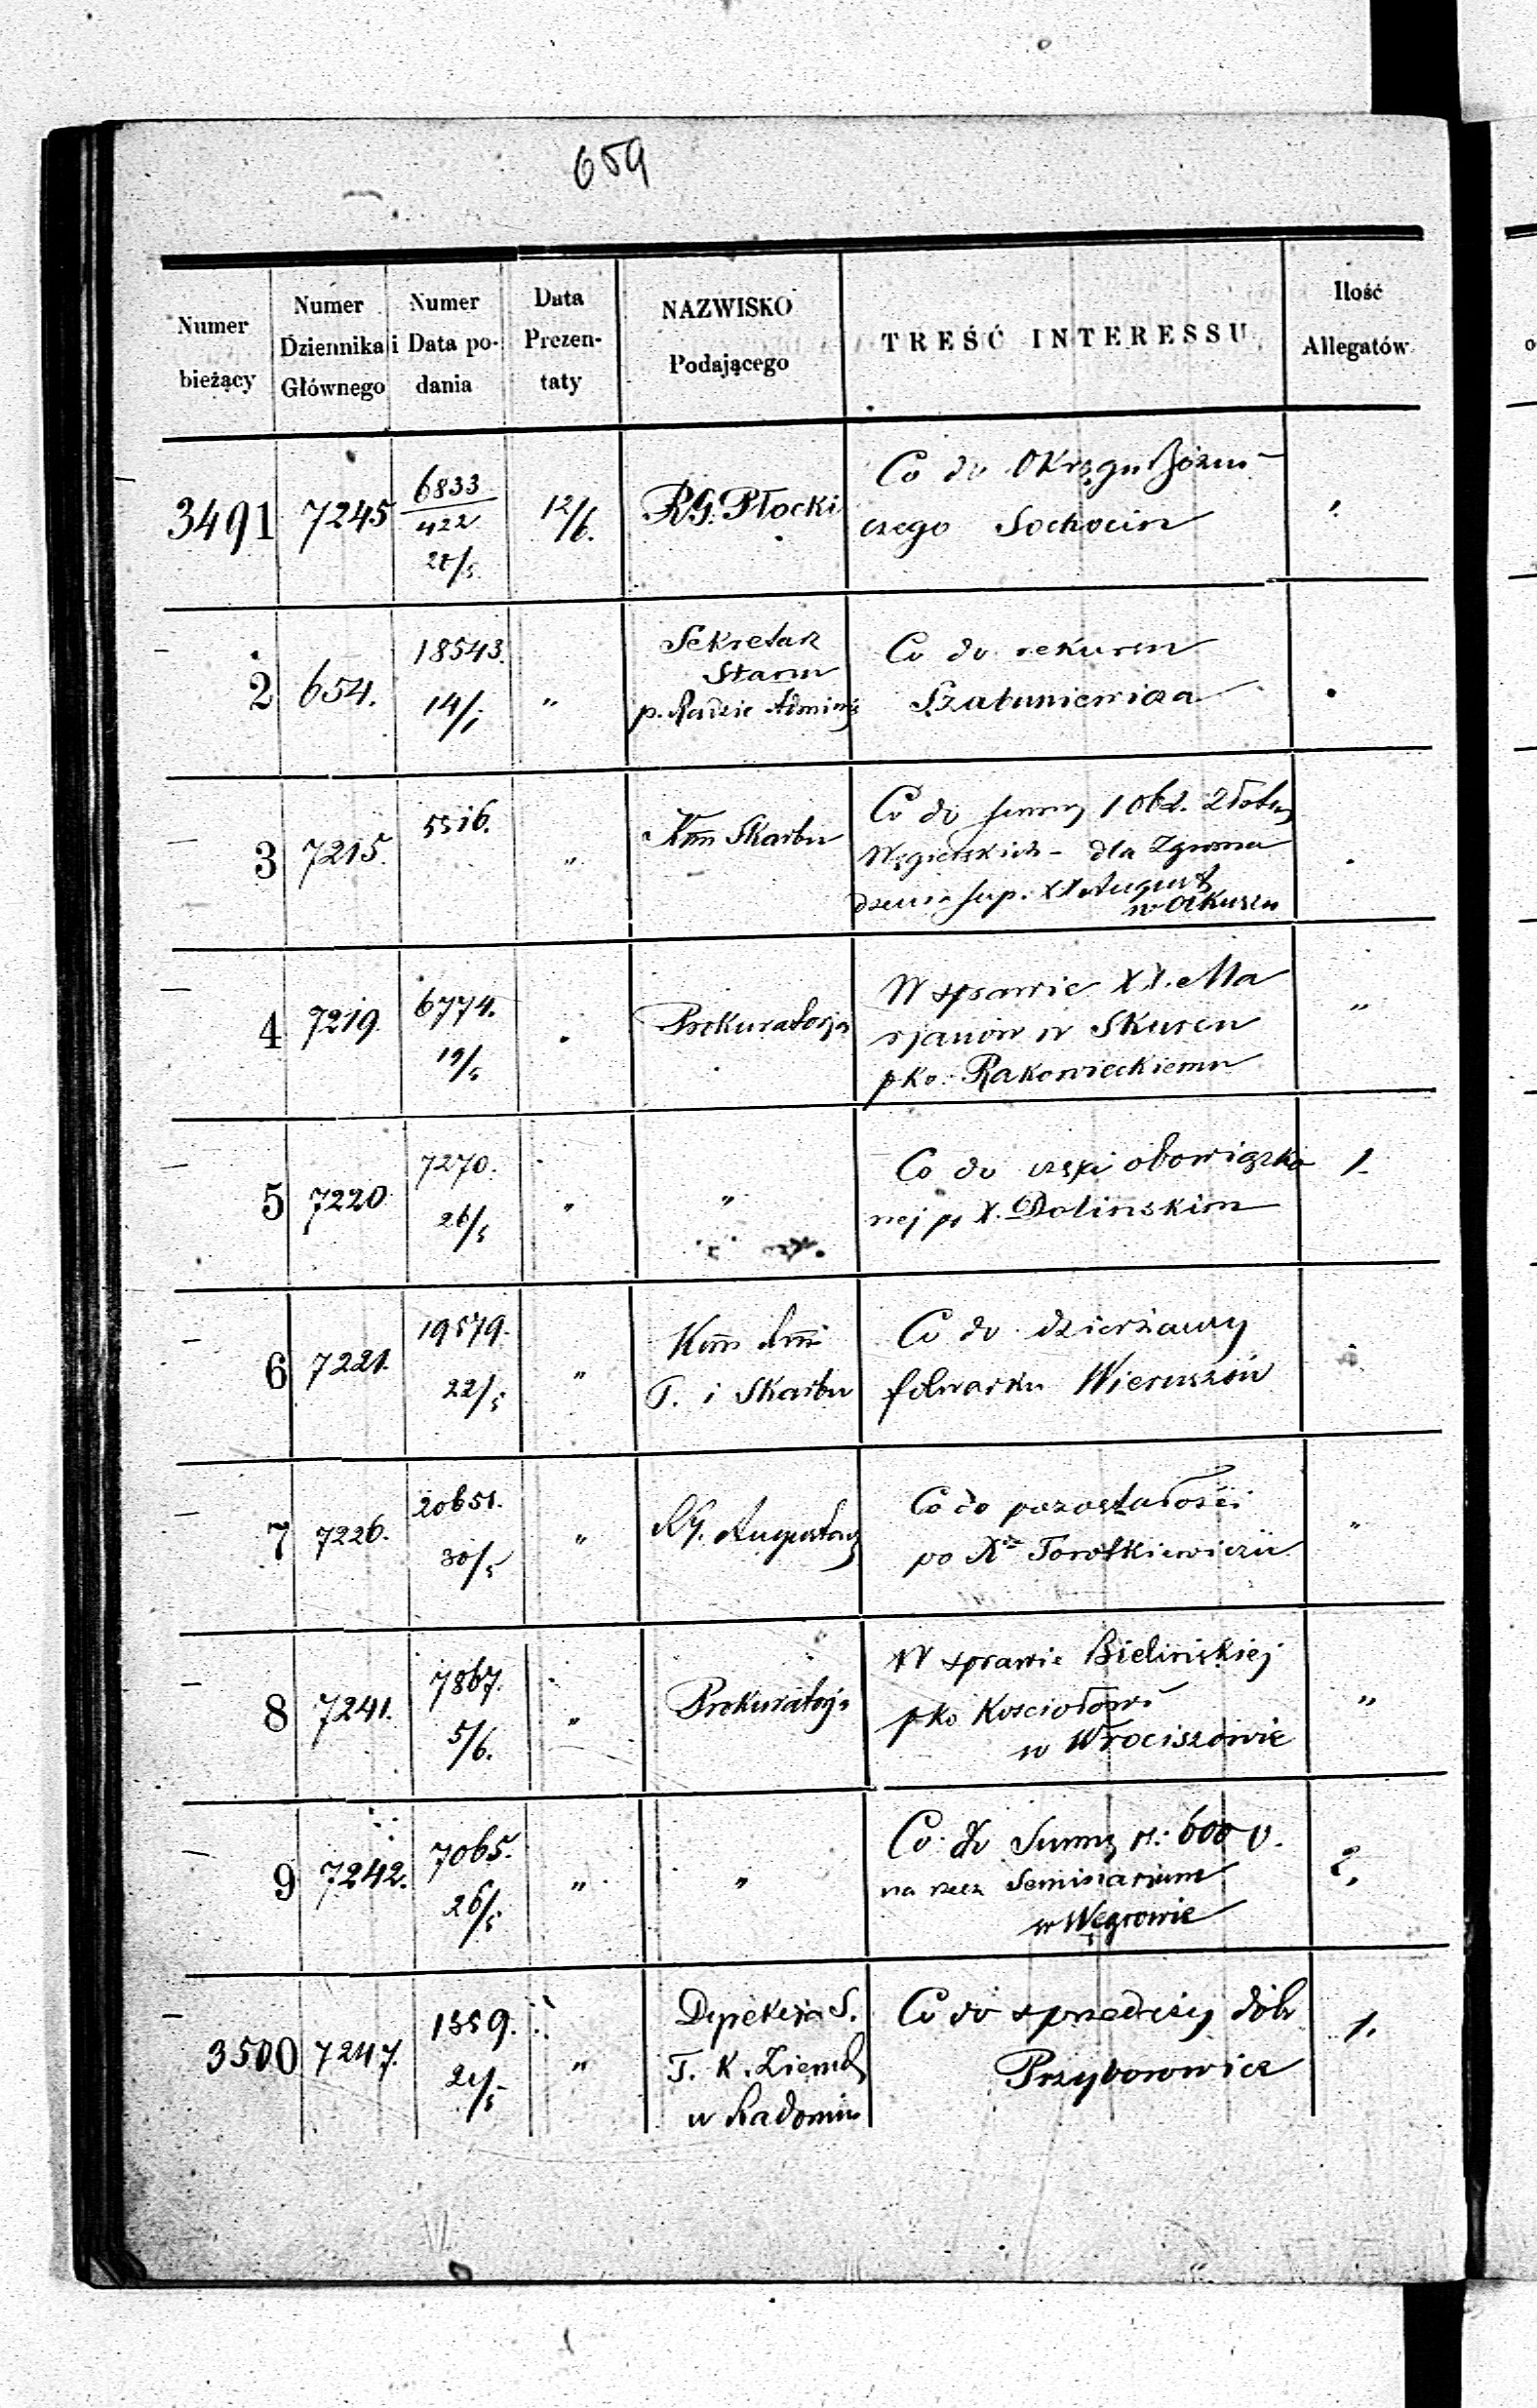 659
Numer bieżący | Numer Dziennika Głównego | Numer i Data podania | Data Prezentaty | NAZWISKO Podającego | TREŚĆ INTERESSU | Ilość Allegatów
3491 7245 6833/422 12/6. RG. Płocki Co do Okręgu Bóżni-
czego Sochocin
2 654. 18543. 14/1 " Sekretarz
Stanu
p. Radzie Co do rekursu
Szatuniewicza
3 7215. 5516. " Kom Skarbu Co do summy 1 obl. Złotych
Węgierskich - dla Zgroma
dzenia sup. XX August
w Olkuszu
4 7219. 6774. 19/5 Prokuratorja W sprawie XX. Ma
rjanów w Skurcu "
pko. Rakowieckiemu
5 7220 7270. 26/5 " " Co do części obowiązko 1.
nej po X. Dolinskim
6 7221. 19579. 22/5 " Kom
P. i Skarbu Co do dzierżawy
folwarku Wieruszów
7 7226. 20651. 30/5 " RG. Augustows Co do pozostałości "
po X
8 7241. 7867. 5/6. " Prokuratorja W sprawie Bielińskiej
pko Kosciołowi "
w Wrociszowie
9 7242. 7065. 26/5 " " Co do Summy rs: 600 2.
na rzecz Seminarium
w Węgrowie
3500 7247. 1359. " Dyrekcja S.
T. K. Ziemsk
w Radomiu Co do sprzedaży dóbr 1.
Przyborowice